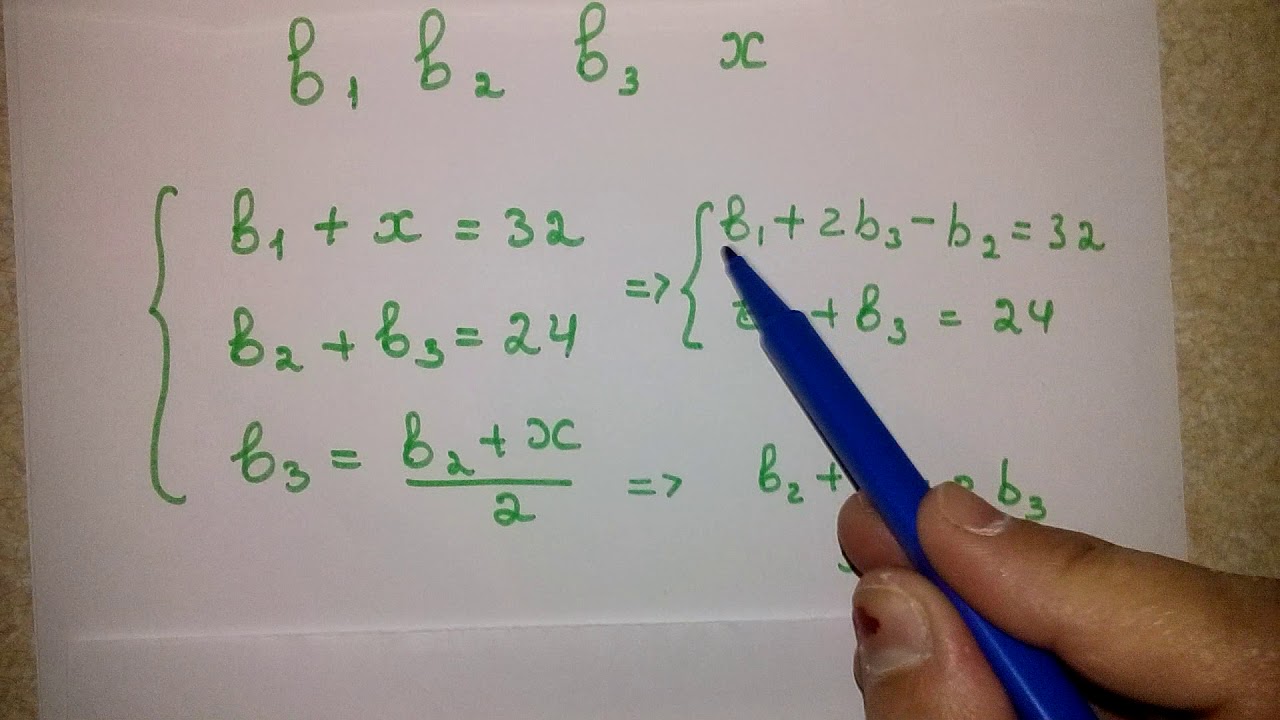 b₁ b₂ b₃ x
b₁ + x = 32
b₂ + b₃ = 24
b₃ = (b₂ + x)/2
=> { b₁ + 2b₃ - b₂ = 32
+ b₃ = 24
=> b₂ + b₃